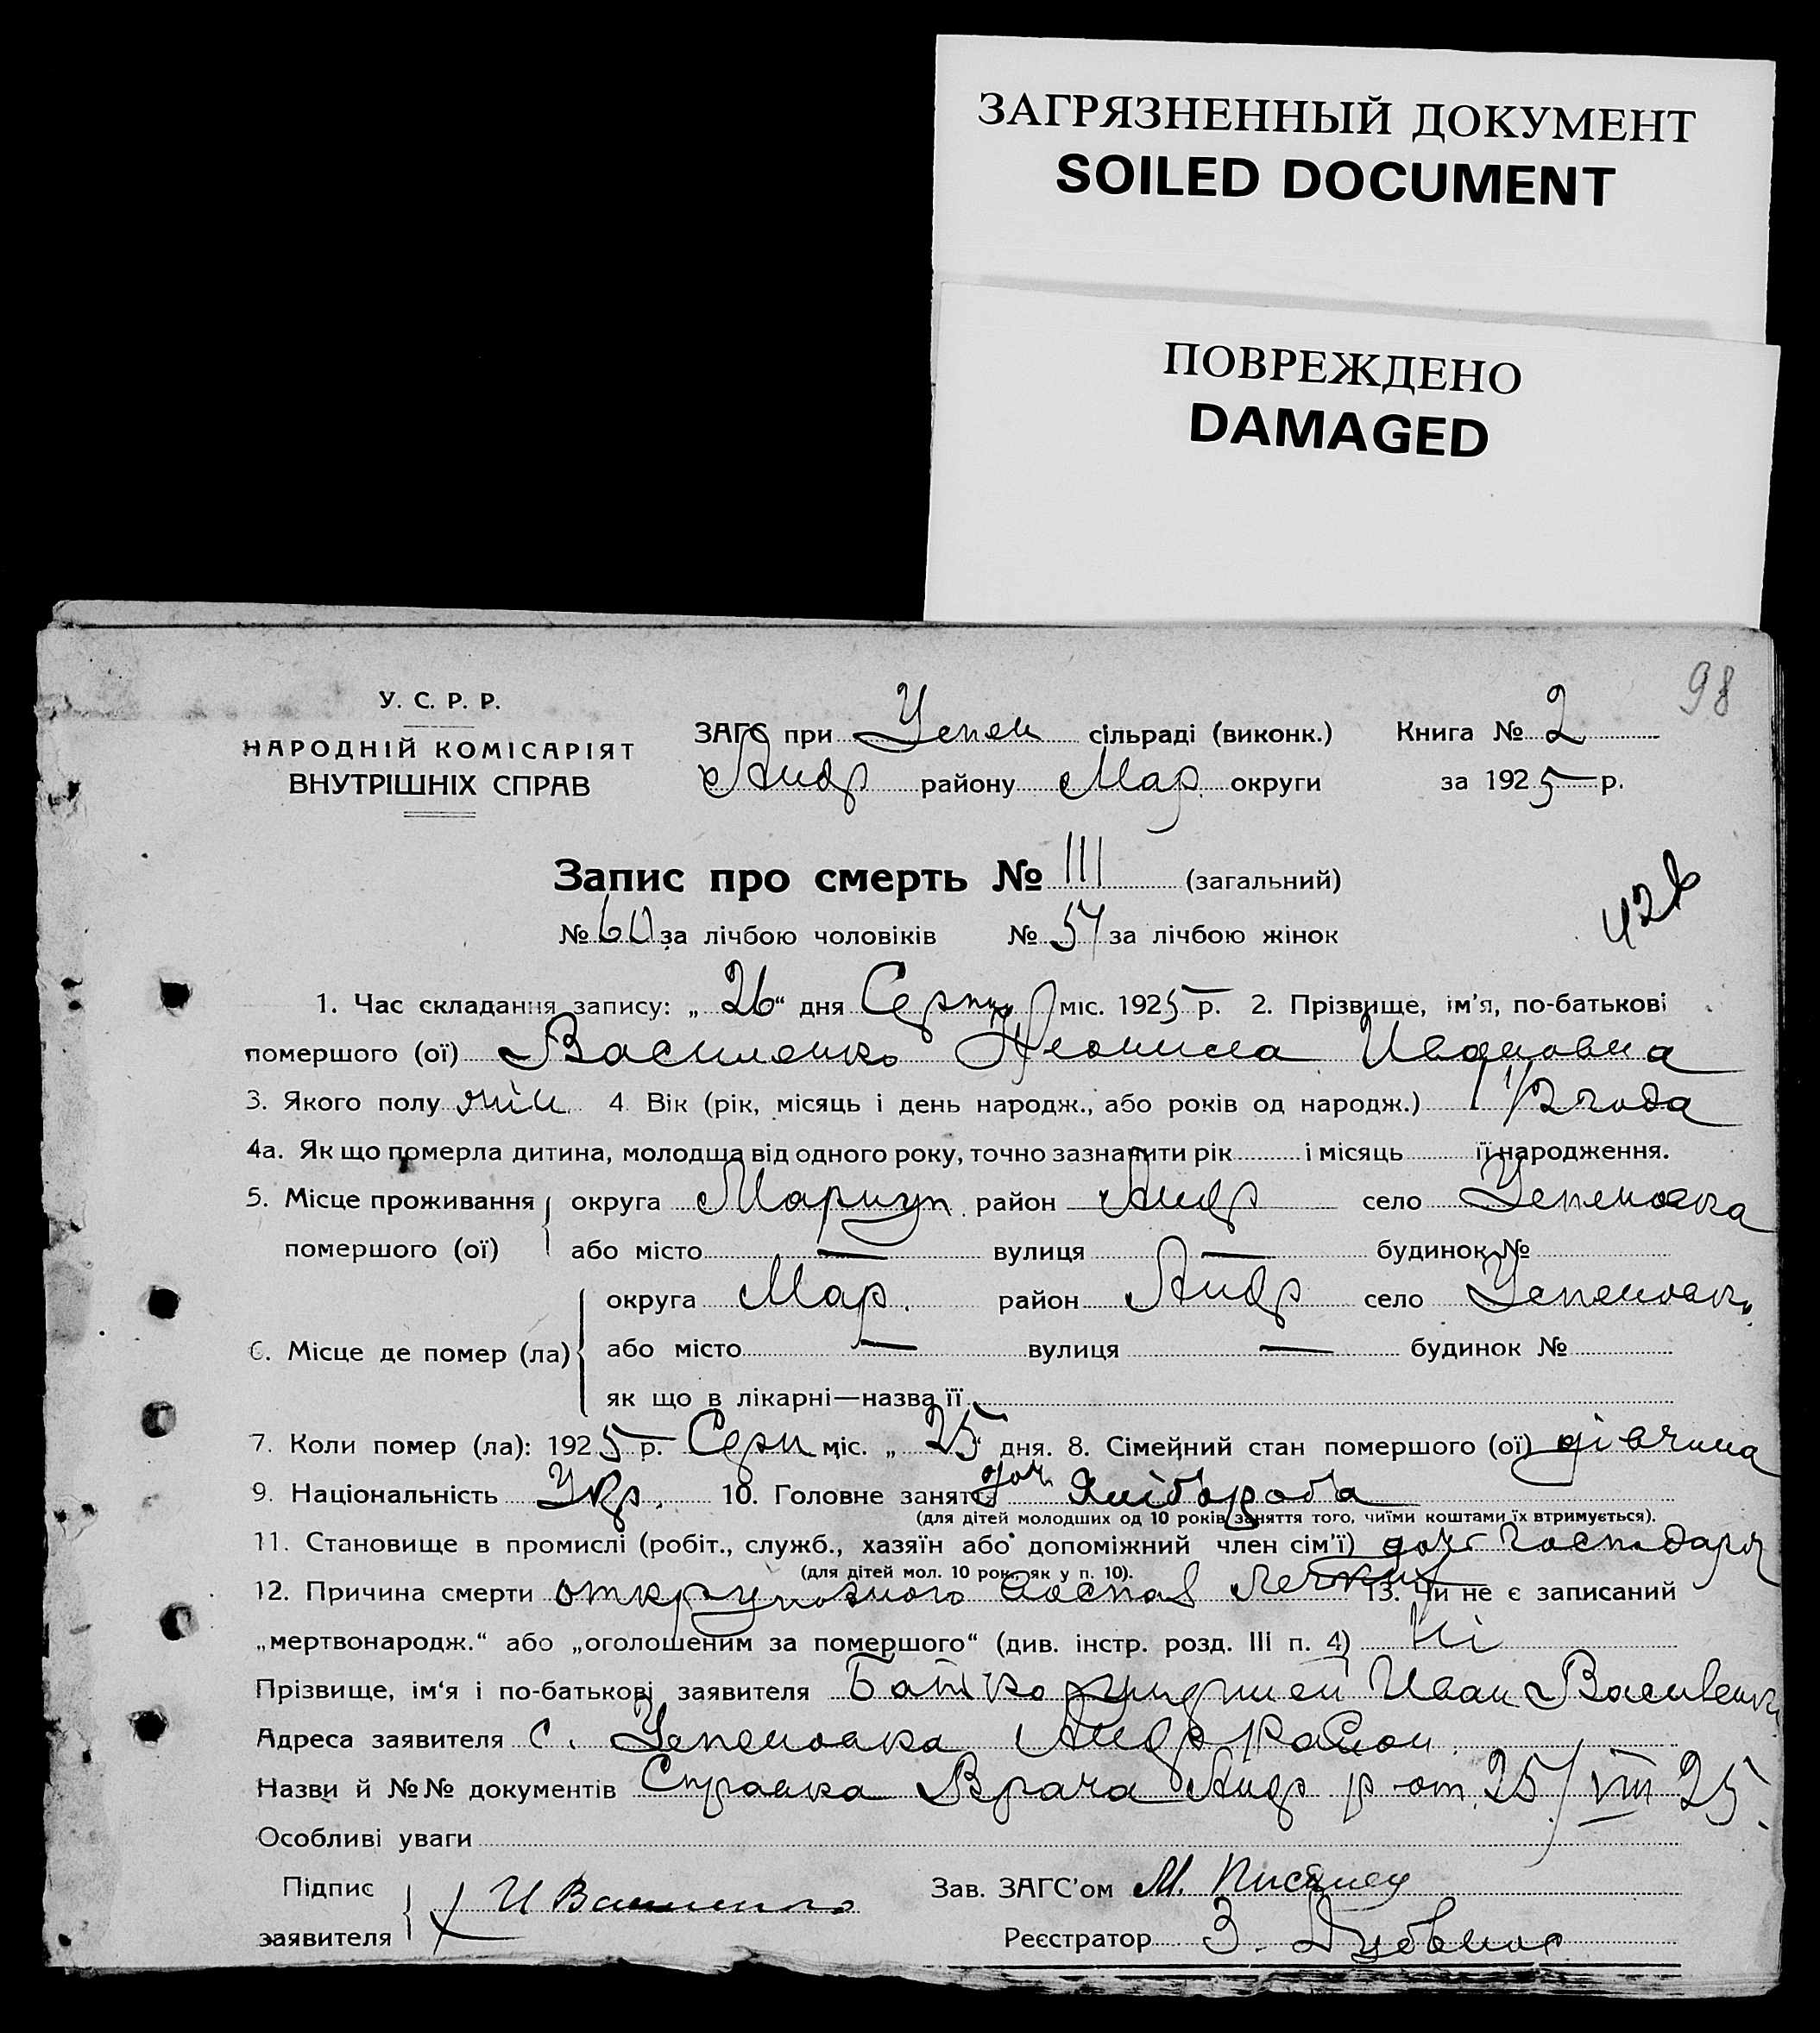 ЗАГРЯЗНЕННЫЙ ДОКУМЕНТ
SOILED DOCUMENT
ПОВРЕЖДЕНО
DAMAGED
98
У. С. Р. Р.
НАРОДНІЙ КОМІСАРІЯТ
ВНУТРІШНІХ СПРАВ
ЗАГС при Успен сільраді (виконк.) Книга № 2
Андр району Мар. округи за 1925 р.
Запис про смерть № 111 (загальний)
№ 60 за лічбою чоловіків № 51 за лічбою жінок
1. Час складання запису: „26“ дня Серпня міс. 1925 р. 2. Прізвище, ім'я, по-батькові
помершого (ої) Василенко Ивановна
3. Якого полу жін. 4 Вік (рік, місяць і день народж., або років од народж.) 1 1/2 года
4а. Як що померла дитина, молодша від одного року, точно зазначити рік і місяць її народження.
5. Місце проживання округа Мариуп. район Андр село Успеновка
помершого (ої) або місто — вулиця — будинок №
округа Мар. район Андр село Успеновк
6. Місце де помер (ла) або місто — вулиця — будинок №
як що в лікарні—назва її
7. Коли помер (ла): 1925 р. Серп міс. „25“ дня. 8. Сімейний стан помершого (ої) дівчина
9. Національність Укр. 10. Головне заняття доч. Хлібороба
(для дітей молодших од 10 років заняття того, чиїми коштами їх втримується).
11. Становище в промислі (робіт., служб., хазяїн або допоміжний член сім'ї) доч. Господаря
(для дітей мол. 10 рок. як у п. 10).
12. Причина смерти от крупозного воспал легких 13. Чи не є записаний
„мертвонародж.“ або „оголошеним за помершого“ (див. інстр. розд. III п. 4) Ні
Прізвище, ім'я і по-батькові заявителя Батько Иван Василенко
Адреса заявителя с. Успеновка Андр район.
Назви й №№ документів Справка Врача Андр р от 25/VIII 25.
Особливі уваги
Підпис заявителя И Василенко Зав. ЗАГС'ом М.
Реєстратор З.